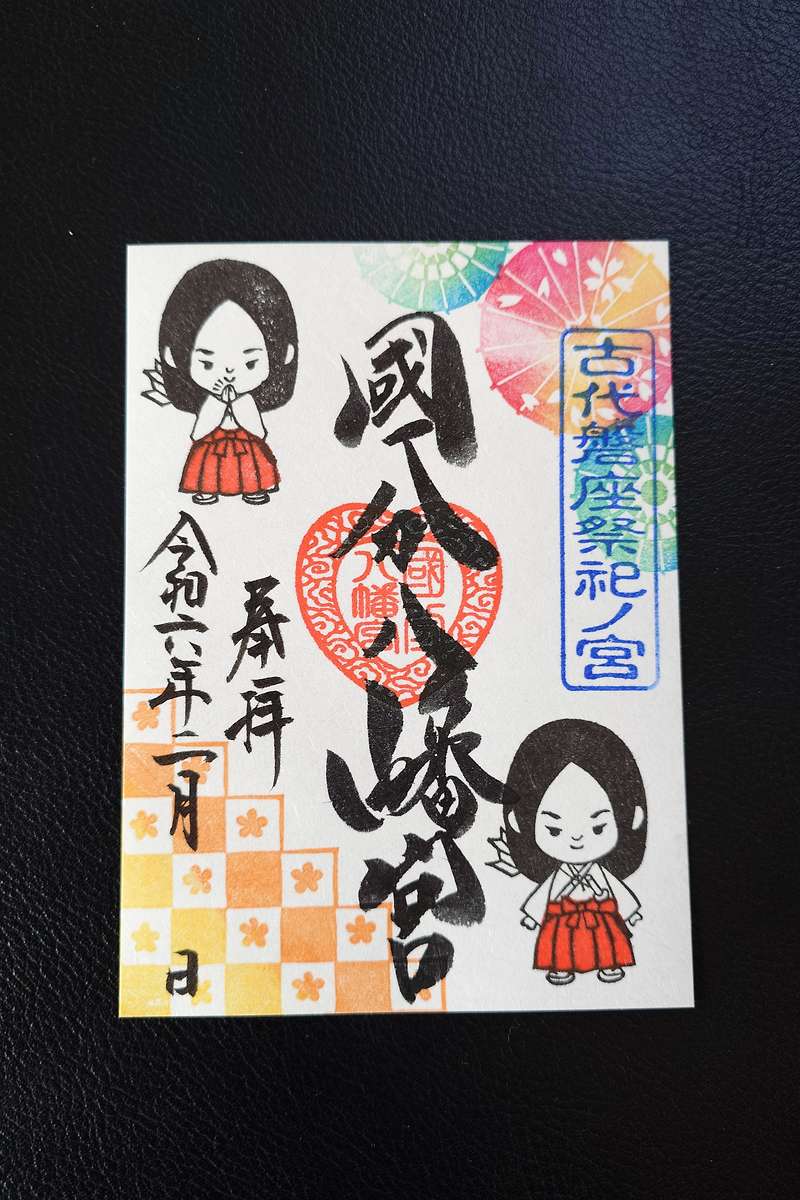 古代磐座祭祀ノ宮
國分八幡宮
奉拝
令和六年二月 日